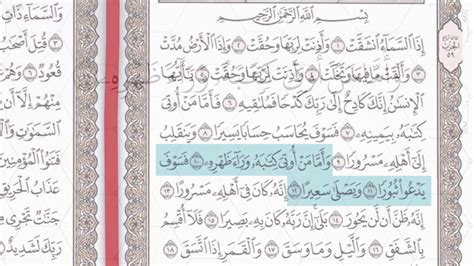 بِسْمِ ٱللَّهِ ٱلرَّحْمَٰنِ ٱلرَّحِيمِ
إِذَا ٱلسَّمَآءُ ٱنشَقَّتْ ١ وَأَذِنَتْ لِرَبِّهَا وَحُقَّتْ ٢ وَإِذَا ٱلْأَرْضُ مُدَّتْ
٣ وَأَلْقَتْ مَا فِيهَا وَتَخَلَّتْ ٤ وَأَذِنَتْ لِرَبِّهَا وَحُقَّتْ ٥ يَٰٓأَيُّهَا
ٱلْإِنسَٰنُ إِنَّكَ كَادِحٌ إِلَىٰ رَبِّكَ كَدْحًا فَمُلَٰقِيهِ ٦ فَأَمَّا مَنْ أُوتِىَ
كِتَٰبَهُۥ بِيَمِينِهِۦ ٧ فَسَوْفَ يُحَاسَبُ حِسَابًا يَسِيرًا ٨ وَيَنقَلِبُ
إِلَىٰٓ أَهْلِهِۦ مَسْرُورًا ٩ وَأَمَّا مَنْ أُوتِىَ كِتَٰبَهُۥ وَرَآءَ ظَهْرِهِۦ ١٠ فَسَوْفَ
يَدْعُوا۟ ثُبُورًا ١١ وَيَصْلَىٰ سَعِيرًا ١٢ إِنَّهُۥ كَانَ فِىٓ أَهْلِهِۦ مَسْرُورًا ١٣
إِنَّهُۥ ظَنَّ أَن لَّن يَحُورَ ١٤ بَلَىٰٓ إِنَّ رَبَّهُۥ كَانَ بِهِۦ بَصِيرًا ١٥ فَلَآ أُقْسِمُ
بِٱلشَّفَقِ ١٦ وَٱلَّيْلِ وَمَا وَسَقَ ١٧ وَٱلْقَمَرِ إِذَا ٱتَّسَقَ ١٨
الحزب
٥٩
وراء ظهره
وَٱلسَّمَآءِ ذَاتِ
٣ قُتِلَ
قُعُودٌ ٦
مِنْهُمْ إِلَّآ أَن
ٱلسَّمَٰوَٰتِ
فَتَنُوا۟ ٱلْمُؤْمِنِينَ
عَذَابُ ٱلْحَرِيقِ
جَنَّٰتٌ تَجْرِى
رَبِّكَ لَشَدِيدٌ